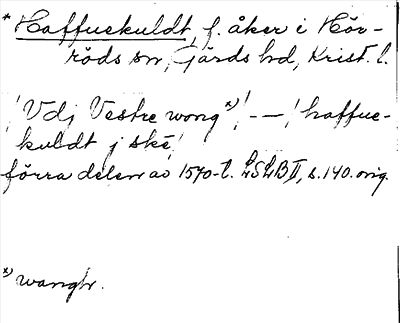 *Haffuekuldt, f. åker i Hör-
röds sn, Gärds hd, Krist. l.
"Vdj Vestre wong x)" — —, "haffue-
kuldt j ske"
förra delen av 1570-t. LSLB II, s. 140. orig.
x) wanghr.